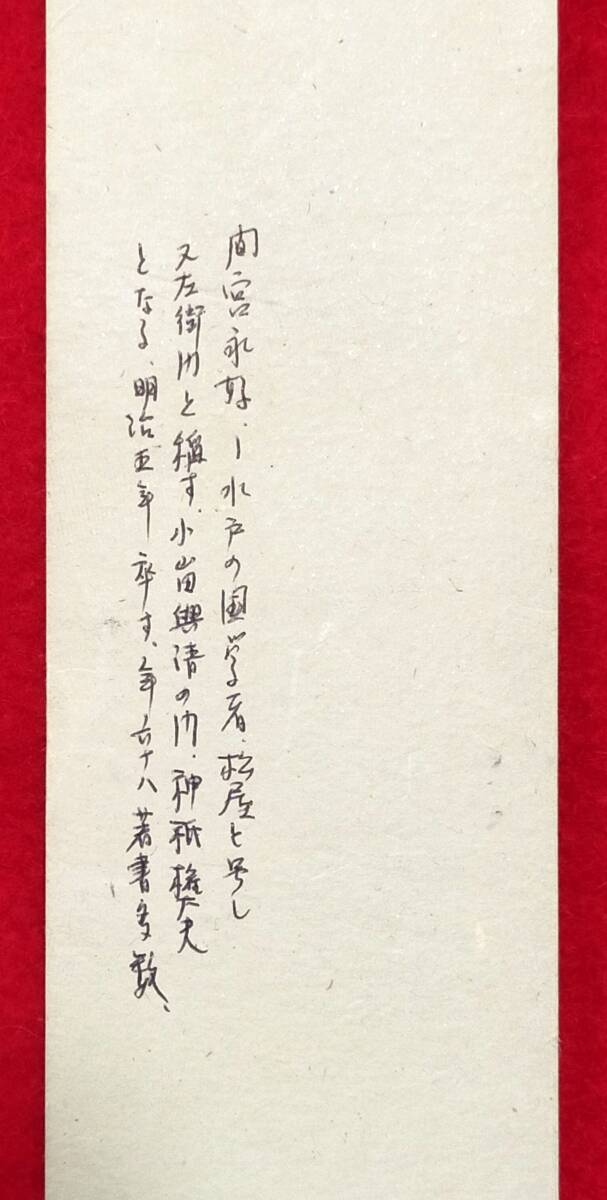 间宮永好、ー水戸の国学者、松屋と号し
又左衛门と稱す、小山田與清の门、神祇権大夫
となる、明治五年卒す、年六十八著書多数、